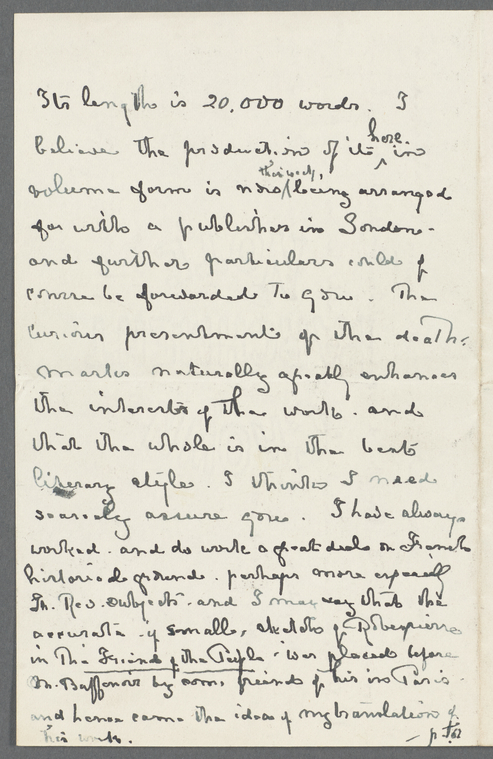 Its length is 20,000 words. I
believe the production of its here. in
volume form is now this week, being arranged
for with a publisher in London -
and further particulars could of
course be forwarded to you. The
curious presentment of the death-
marks naturally greatly enhances
the interests of the work. and
that the whole is in the best
literary style. I think I need
scarcely assure you. I have always
worked. and do work a great deal on French
historical ground. perhaps more especially
Fr. Rev. subjects. and I may say that the
accurate small, sketch of Robespierre
in The Friend of the People was placed before
M. Buffenoir by some friends of his in Paris -
and hence came the idea of my translation of
his work.